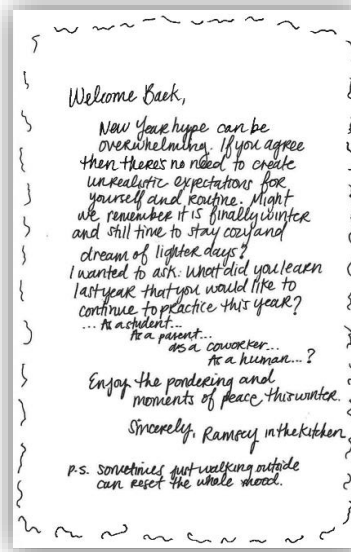 Welcome Back,
New Year hype can be
overwhelming. If you agree
then there's no need to create
unrealistic expectations for
yourself and routine. Might
we remember it is finally winter
and still time to stay cozy and
dream of lighter days?
I wanted to ask: What did you learn
last year that you would like to
continue to practice this year?
... As a student...
As a parent...
As a coworker...
As a human...?
Enjoy the pondering and
moments of peace this winter.
Sincerely, Ramsey in the kitchen
p.s. sometimes just walking outside
can reset the whole mood.